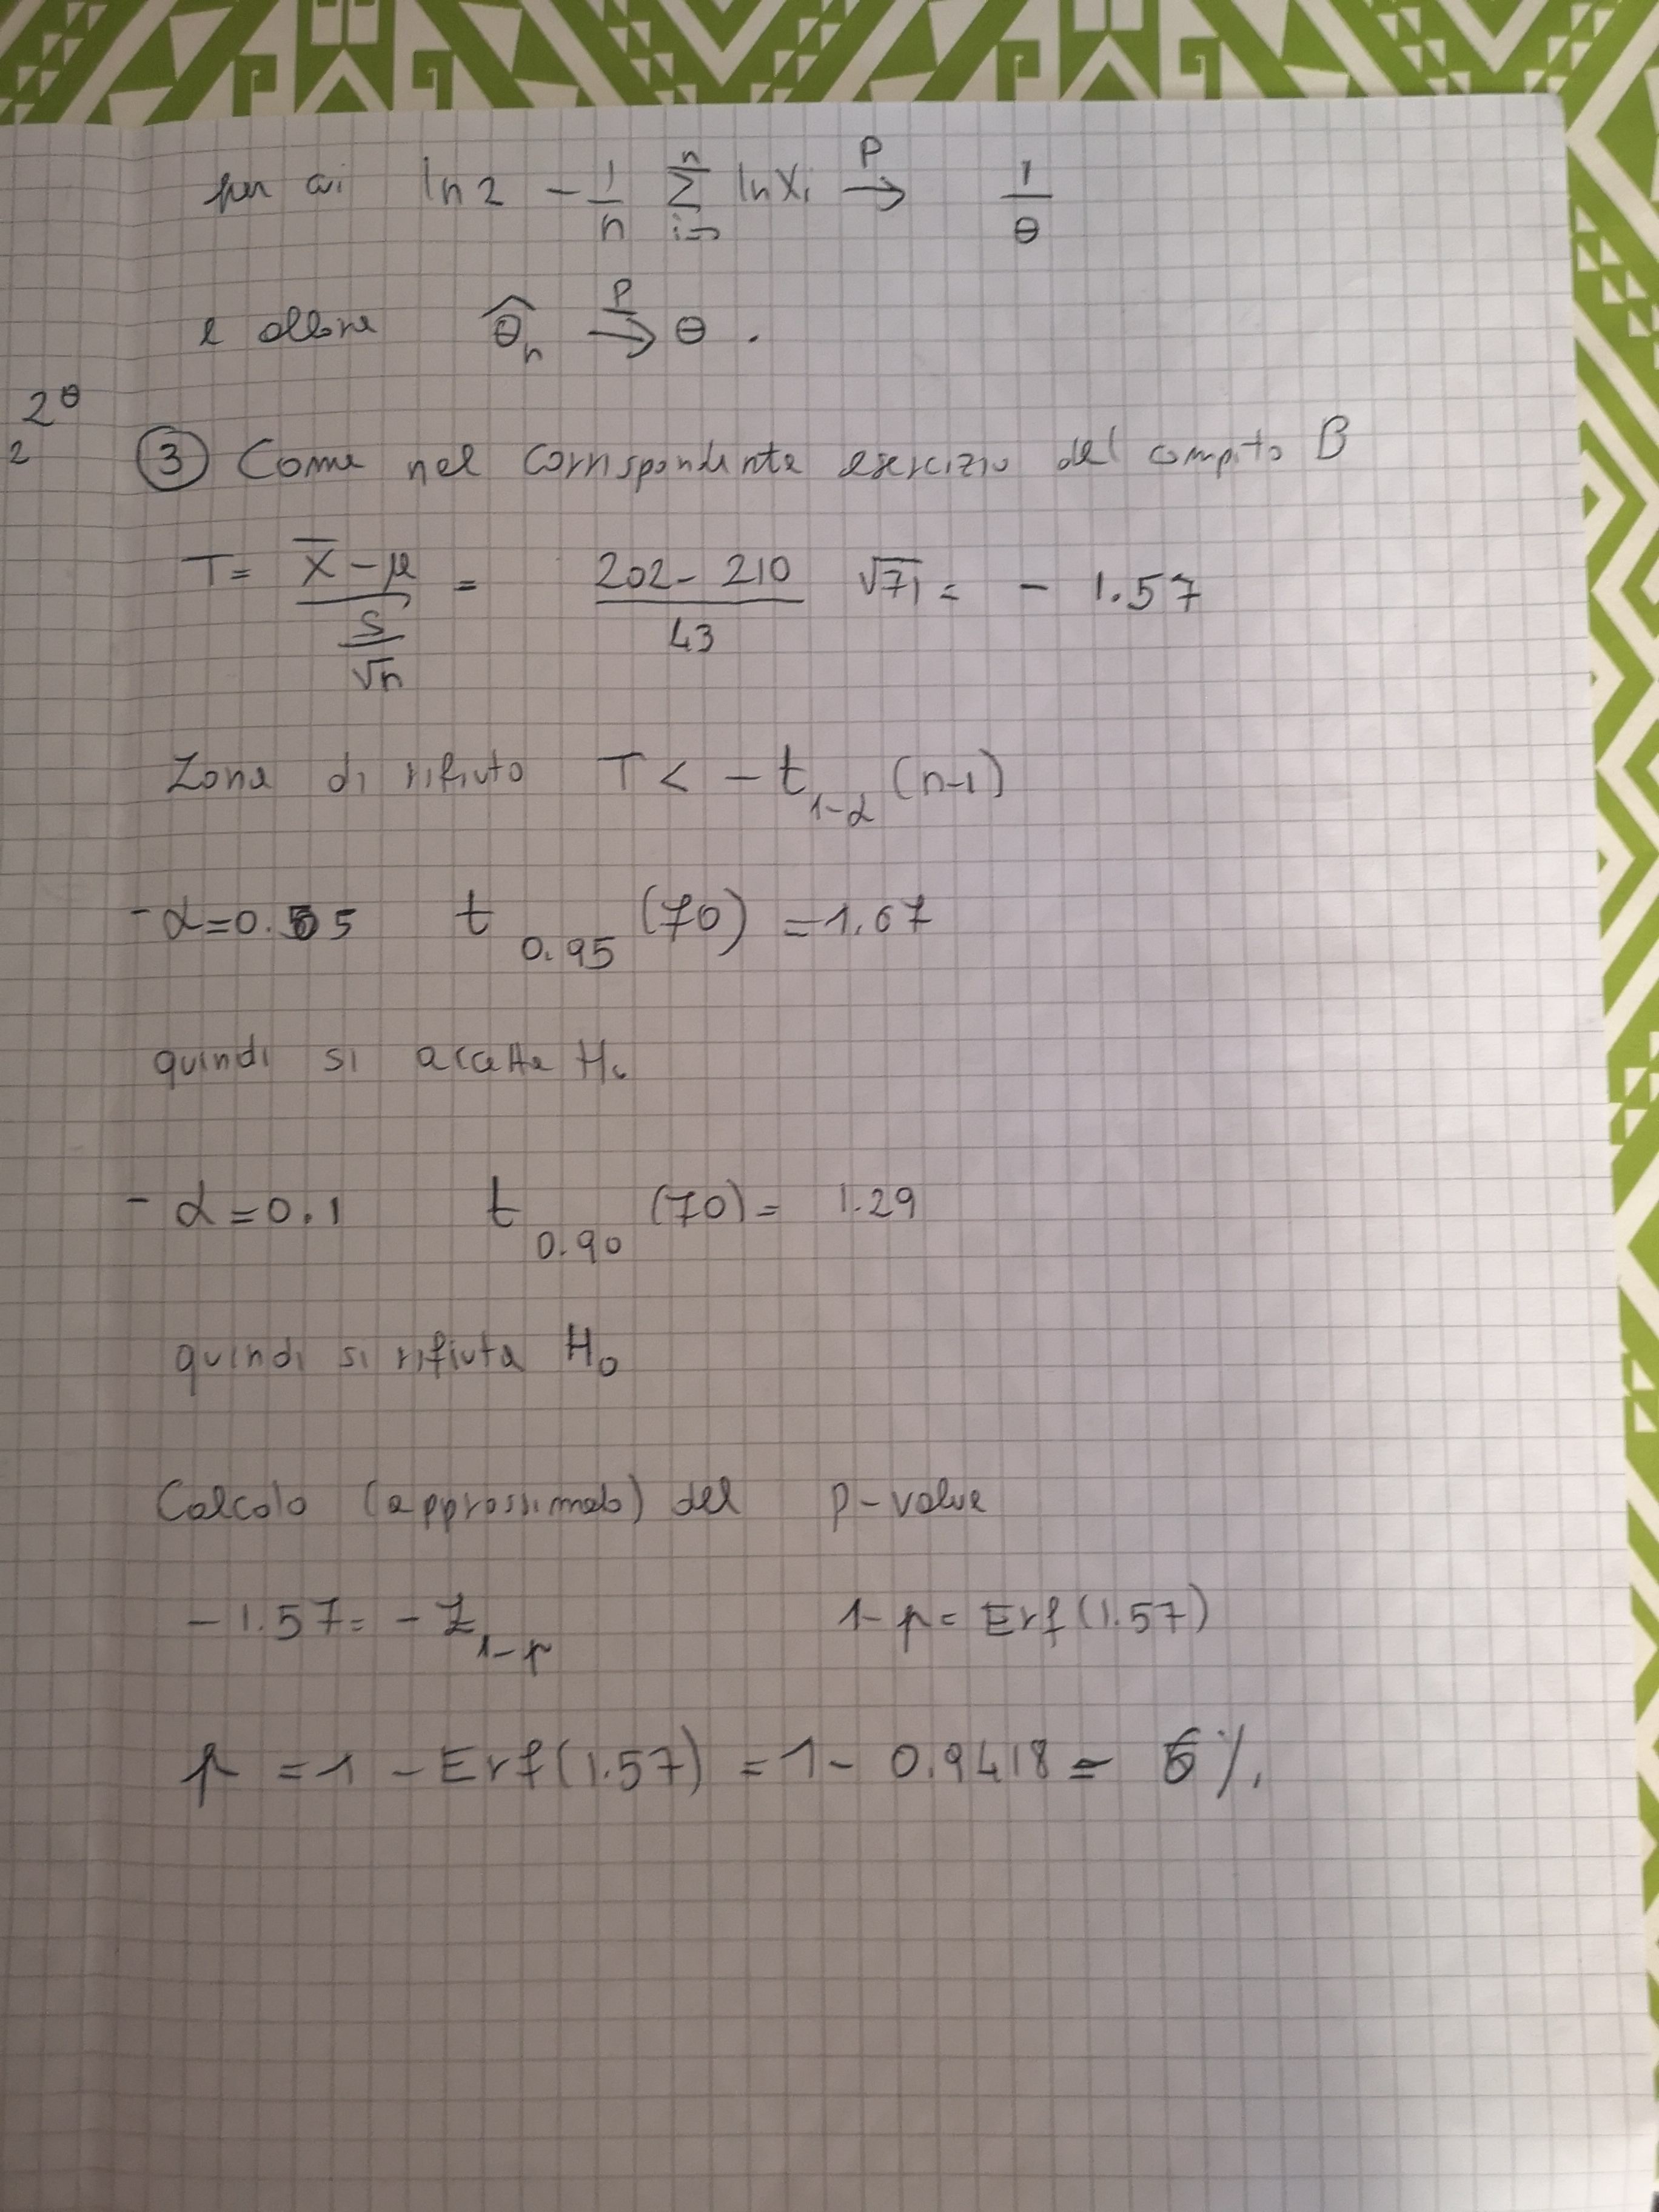 per cui ln 2 - 1/n Σ_{i=1}^{n} ln X_i →^P 1/θ
e allora θ̂_n →^P θ .
2^θ
2
③ Come nel corrispondente esercizio del compito B
T = (X̄ - μ)/(S/√n) = (202 - 210)/43 √71 = - 1.57
Zona di rifiuto T < - t_{1-α} (n-1)
- α = 0.05 t_{0.95} (70) = 1.67
quindi si accetta H_0
- α = 0.1 t_{0.90} (70) = 1.29
quindi si rifiuta H_0
Calcolo (approssimato) del p-value
- 1.57 = - z_{1-p} 1 - p = Erf(1.57)
p = 1 - Erf(1.57) = 1 - 0.9418 = 6%.